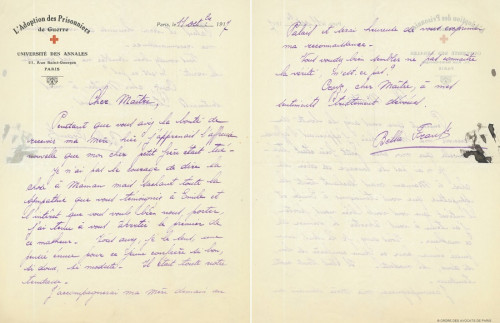 L'Adoption des Prisonniers
de Guerre
UNIVERSITÉ DES ANNALES
51, Rue Saint-Georges
PARIS
Paris, le 11 octobre 1917
Cher Maître,
Pendant que vous avez la bonté de
recevoir ma mère, j'apprends l'affreuse
nouvelle que mon cher petit frère était tué.
Je n'ai pas le courage de dire la
chose à Maman mais sachant toute la
sympathie que vous témoignez à Emile et
l'intérêt que vous voulez bien nous porter,
j'ai tenu à vous avertir le premier de
ce malheur. Vous avez, je le sais, une
pour ce jeune confrère si bon,
si doux, si modeste. Il était toute notre
tendresse.
J'accompagnerai ma mère demain au
Palais et serai heureuse de vous exprimer
ma reconnaissance.
Vous voudrez bien sembler ne pas connaître
la vérité. N'est-ce pas?
Croyez, cher Maître, à mes
sentiments tristement dévoués.
Bella Franck
© ORDRE DES AVOCATS DE PARIS